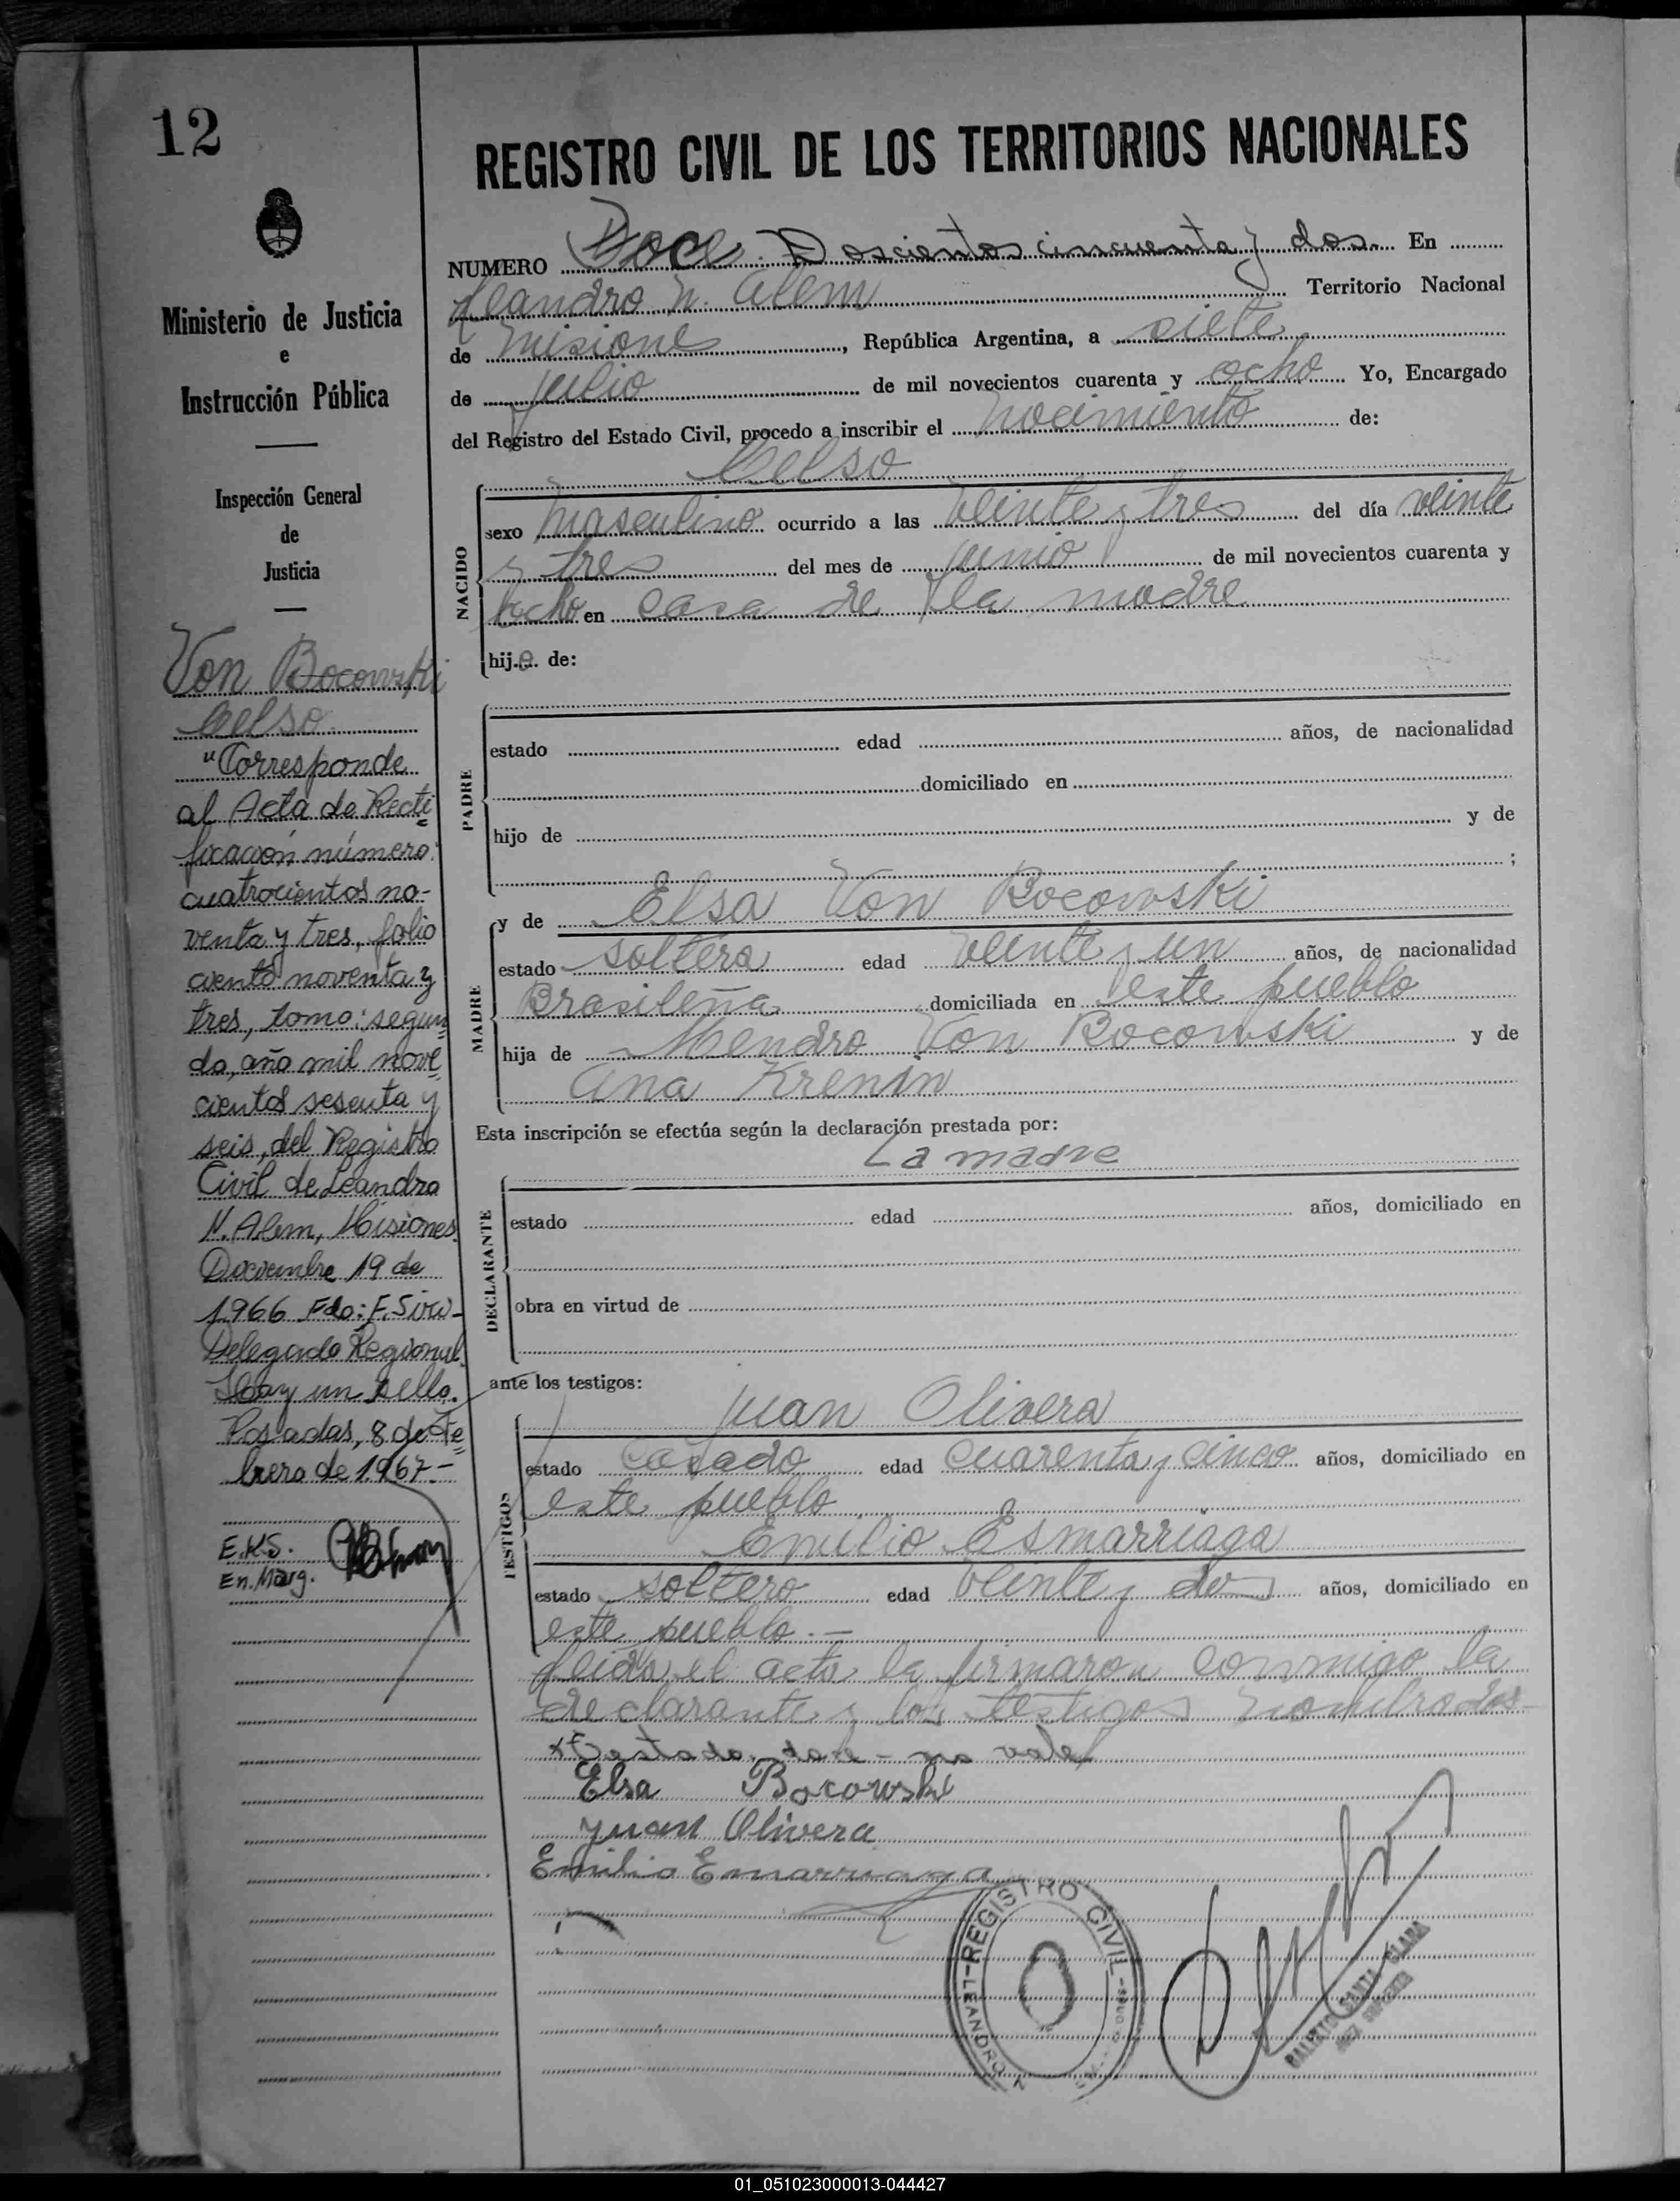 12
REGISTRO CIVIL DE LOS TERRITORIOS NACIONALES
Ministerio de Justicia
e
Instrucción Pública
Inspección General
de
Justicia
Von Bocowski
Celso
"Corresponde
al Acta de Recti
ficación número:
cuatrocientos no-
venta y tres, folio
ciento noventa y
tres, tomo: segun
do, año mil nove
cientos sesenta y
seis, del Registro
Civil de Leandro
N. Alem, Misiones.
Diciembre 19 de
1966 Fdo: F. Siro-
Delegado Regional.
Hay un sello.
Posadas, 8 de Fe
brero de 1967.-
E.K.S.
En. Marg.
NUMERO Doce. Doscientos cincuenta y dos. En
Leandro N. Alem Territorio Nacional
de Misiones, República Argentina, a siete
de julio de mil novecientos cuarenta y ocho Yo, Encargado
del Registro del Estado Civil, procedo a inscribir el nacimiento de:
Celso
NACIDO
sexo masculino ocurrido a las veinte y tres del día veinte
y tres del mes de junio de mil novecientos cuarenta y
ocho en casa de la madre
hijo de:
PADRE
estado edad años, de nacionalidad
domiciliado en
hijo de y de
;
MADRE
y de Elsa Von Bocowski
estado soltera edad veinte y un años, de nacionalidad
Brasileña domiciliada en este pueblo
hija de Mendro Von Bocowski y de
Ana Krenin
Esta inscripción se efectúa según la declaración prestada por:
La madre
DECLARANTE
estado edad años, domiciliado en
obra en virtud de
ante los testigos:
TESTIGOS
Juan Olivera
estado casado edad cuarenta y cinco años, domiciliado en
este pueblo
Emilio Esmarriaga
estado soltero edad veinte y dos años, domiciliado en
este pueblo.-
Leida el acta la firmaron conmigo la
declarante y los testigos nombrados-
Testado doce - no vale
Elsa Bocowski
Juan Olivera
Emilio Emarriaga
REGISTRO CIVIL
LEANDRO N
SANTA CLARA
01_051023000013-044427